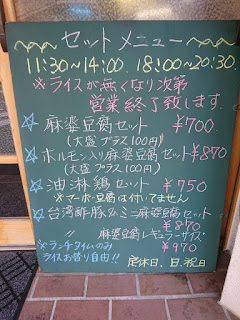 セットメニュー
11:30~14:00. 18:00~20:30.
※ライスが無くなり次第
営業終了致します.
☆麻婆豆腐セット ¥700.
(大盛プラス100円)
☆ホルモン入り麻婆豆腐セット¥870
(大盛プラス100円)
☆油淋鶏セット ¥750
※マーボー豆腐は付いてません
☆台湾酢豚&ミニ麻婆豆腐セット
¥870
〃 麻婆豆腐レギュラーサイズ
¥970
※ランチタイムのみ
ライスお替り自由!!
定休日. 日.祝日